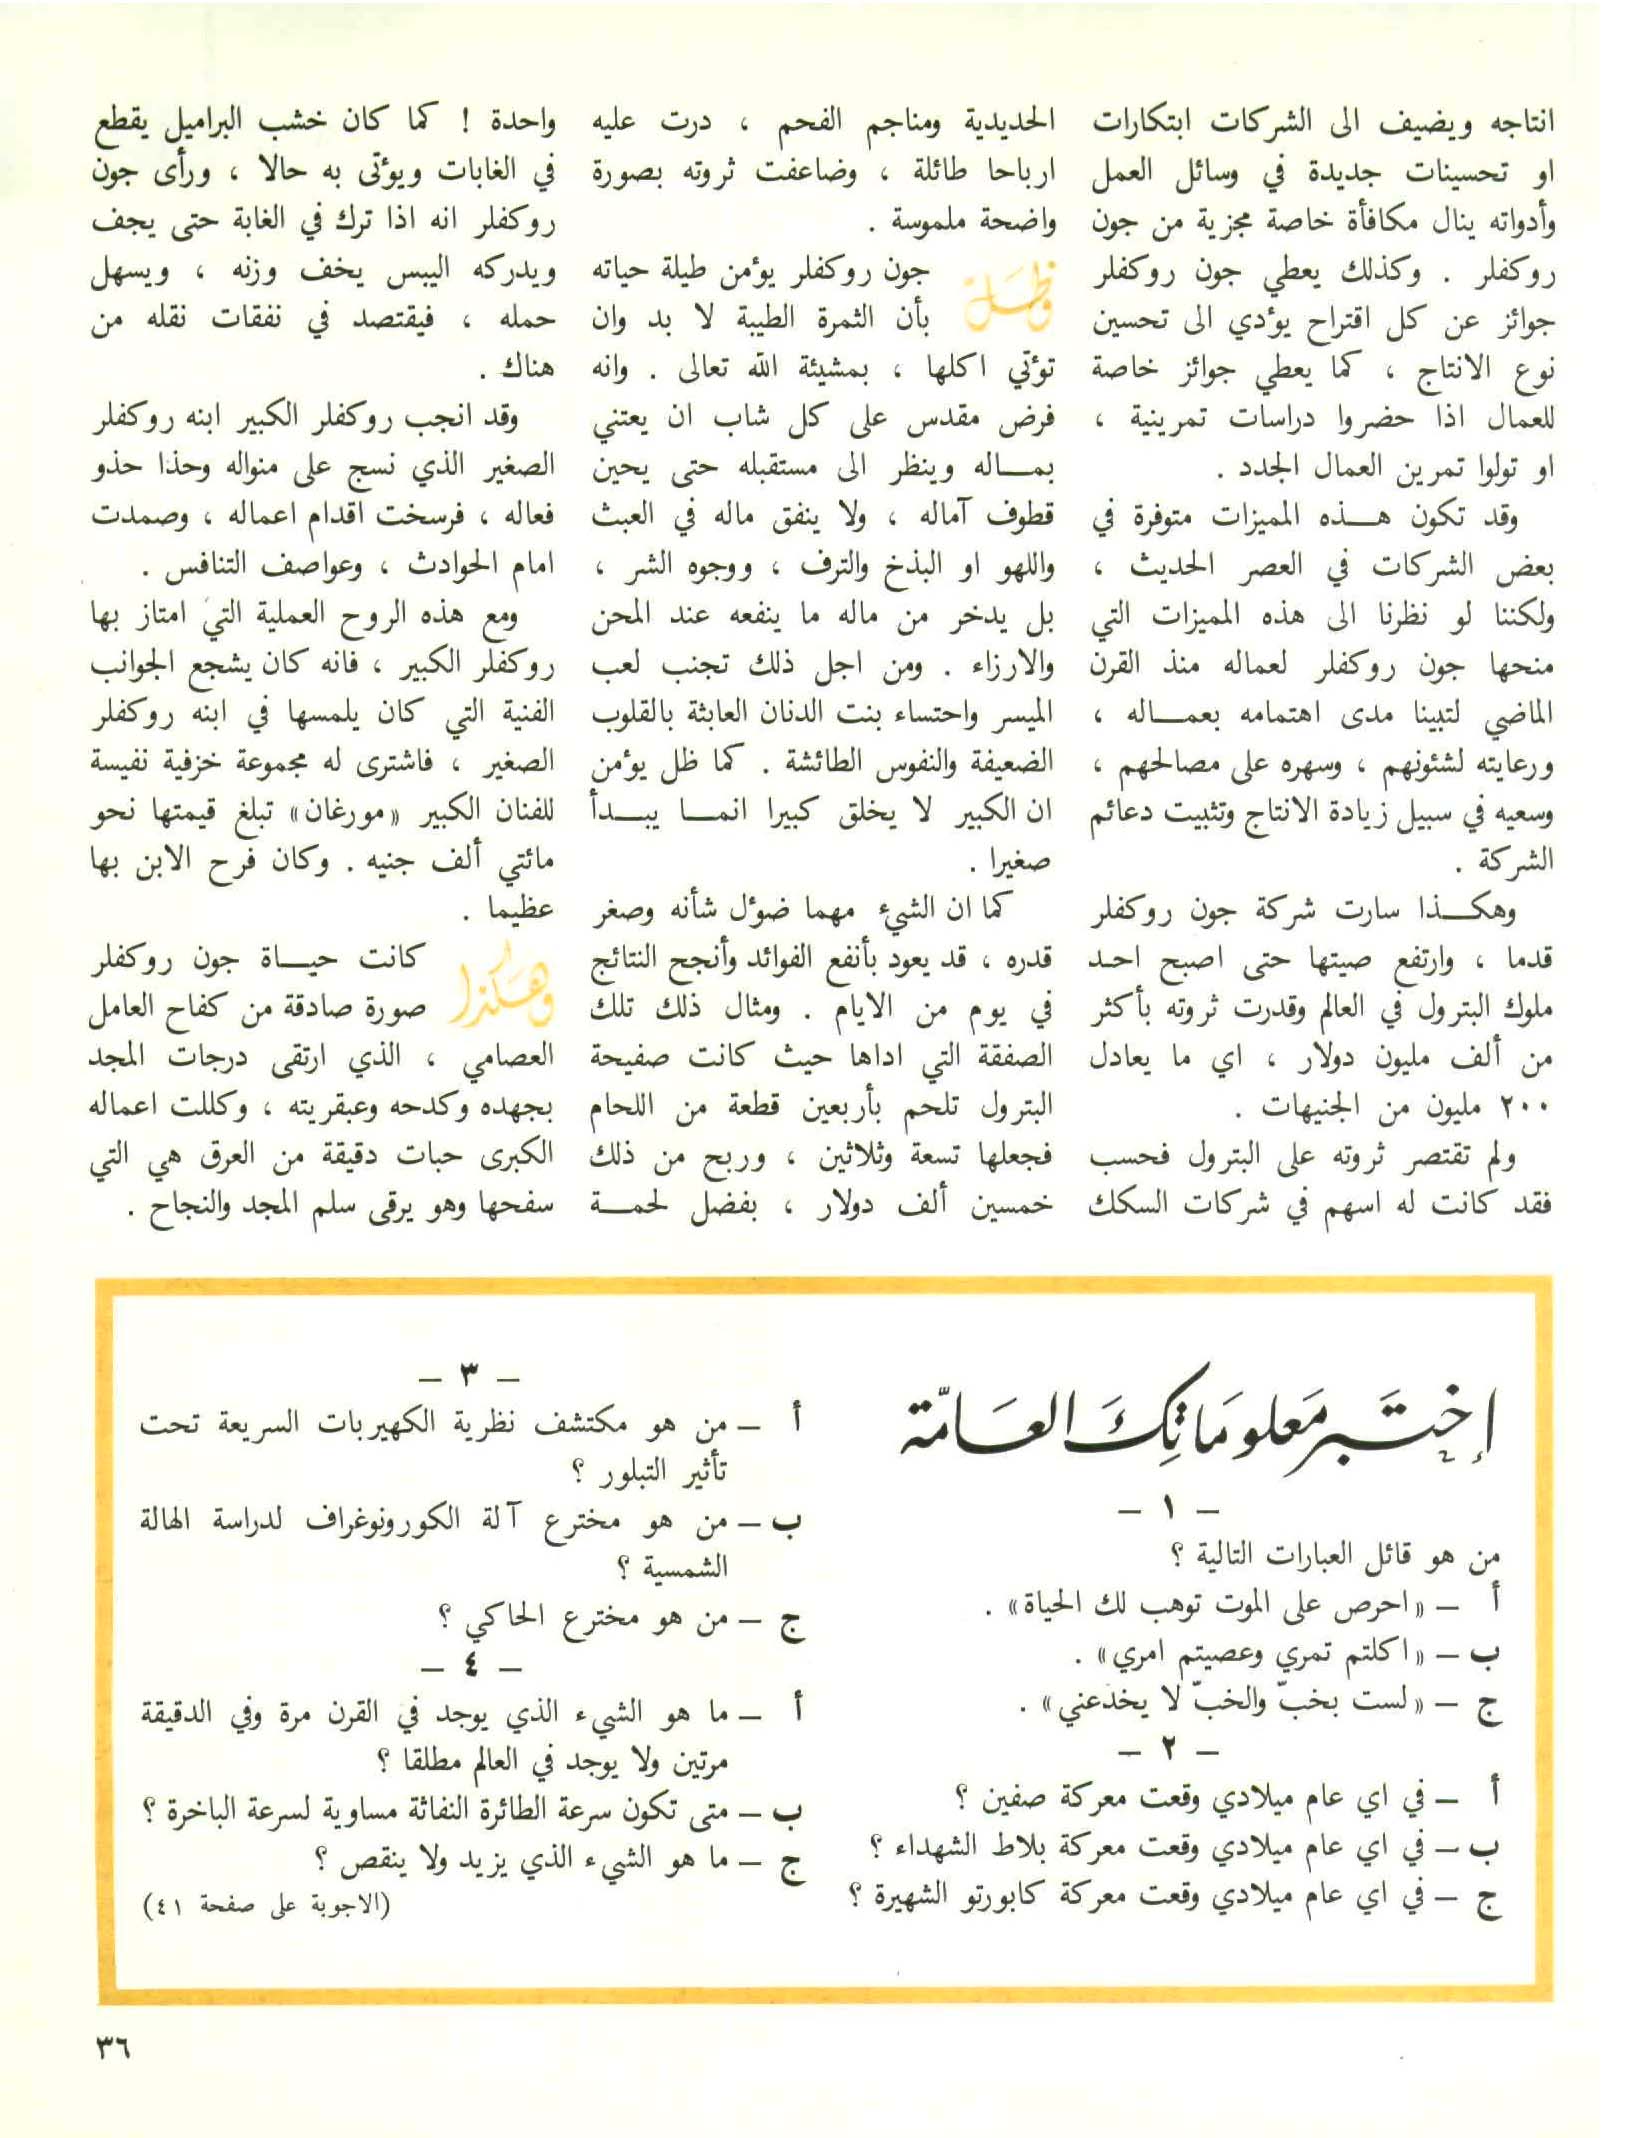 انتاجه ويضيف الى الشركات ابتكارات
او تحسينات جديدة في وسائل العمل
وأدواته ينال مكافأة خاصة مجزية من جون
روكفلر . وكذلك يعطي جون روكفلر
جوائز عن كل اقتراح يؤدي الى تحسين
نوع الانتاج ، كما يعطي جوائز خاصة
للعمال اذا حضروا دراسات تمرينية ،
او تولوا تمرين العمال الجدد .
وقد تكون هذه المميزات متوفرة في
بعض الشركات في العصر الحديث ،
ولكننا لو نظرنا الى هذه المميزات التي
منحها جون روكفلر لعماله منذ القرن
الماضي لتبينا مدى اهتمامه بعماله ،
ورعايته لشئونهم ، وسهره على مصالحهم ،
وسعيه في سبيل زيادة الانتاج وتثبيت دعائم
الشركة .
وهكذا سارت شركة جون روكفلر
قدما ، وارتفع صيتها حتى اصبح احد
ملوك البترول في العالم وقدرت ثروته بأكثر
من ألف مليون دولار ، اي ما يعادل
٢٠٠ مليون من الجنيهات .
ولم تقتصر ثروته على البترول فحسب
فقد كانت له اسهم في شركات السكك
الحديدية ومناجم الفحم ، درت عليه
ارباحا طائلة ، وضاعفت ثروته بصورة
واضحة ملموسة .
وظل جون روكفلر يؤمن طيلة حياته
بأن الثمرة الطيبة لا بد وان
تؤتي اكلها ، بمشيئة الله تعالى . وانه
فرض مقدس على كل شاب ان يعتني
بماله وينظر الى مستقبله حتى يحين
قطوف آماله ، ولا ينفق ماله في العبث
واللهو او البذخ والترف ، ووجوه الشر ،
بل يدخر من ماله ما ينفعه عند المحن
والارزاء . ومن اجل ذلك تجنب لعب
الميسر واحتساء بنت الدنان العابثة بالقلوب
الضعيفة والنفوس الطائشة . كما ظل يؤمن
ان الكبير لا يخلق كبيرا انما يبدأ
صغيرا .
كما ان الشيء مهما ضؤل شأنه وصغر
قدره ، قد يعود بأنفع الفوائد وأنجح النتائج
في يوم من الايام . ومثال ذلك تلك
الصفقة التي اداها حيث كانت صفيحة
البترول تلحم بأربعين قطعة من اللحام
فجعلها تسعة وثلاثين ، وربح من ذلك
خمسين ألف دولار ، بفضل لحمة
واحدة ! كما كان خشب البراميل يقطع
في الغابات ويؤتى به حالا ، ورأى جون
روكفلر انه اذا ترك في الغابة حتى يجف
ويدركه اليبس يخف وزنه ، ويسهل
حمله ، فيقتصد في نفقات نقله من
هناك .
وقد انجب روكفلر الكبير ابنه روكفلر
الصغير الذي نسج على منواله وحذا حذو
فعاله ، فرسخت اقدام اعماله ، وصمدت
امام الحوادث ، وعواصف التنافس .
ومع هذه الروح العملية التي امتاز بها
روكفلر الكبير ، فانه كان يشجع الجوانب
الفنية التي كان يلمسها في ابنه روكفلر
الصغير ، فاشترى له مجموعة خزفية نفيسة
للفنان الكبير «مورغان» تبلغ قيمتها نحو
مائتي ألف جنيه . وكان فرح الابن بها
عظيما .
وهكذا كانت حياة جون روكفلر
صورة صادقة من كفاح العامل
العصامي ، الذي ارتقى درجات المجد
بجهده وكدحه وعبقريته ، وكللت اعماله
الكبرى حبات دقيقة من العرق هي التي
سفحها وهو يرقى سلم المجد والنجاح .
إختبر معلوماتك العامّة
– ١ –
من هو قائل العبارات التالية ؟
أ – «احرص على الموت توهب لك الحياة» .
ب – «اكلتم تمري وعصيتم امري» .
ج – «لست بخبّ والخبّ لا يخدعني» .
– ٢ –
أ – في اي عام ميلادي وقعت معركة صفين ؟
ب – في اي عام ميلادي وقعت معركة بلاط الشهداء ؟
ج – في اي عام ميلادي وقعت معركة كابورتو الشهيرة ؟
– ٣ –
أ – من هو مكتشف نظرية الكهيربات السريعة تحت
تأثير التبلور ؟
ب – من هو مخترع آلة الكورونوغراف لدراسة الهالة
الشمسية ؟
ج – من هو مخترع الحاكي ؟
– ٤ –
أ – ما هو الشيء الذي يوجد في القرن مرة وفي الدقيقة
مرتين ولا يوجد في العالم مطلقا ؟
ب – متى تكون سرعة الطائرة النفاثة مساوية لسرعة الباخرة ؟
ج – ما هو الشيء الذي يزيد ولا ينقص ؟
(الاجوبة على صفحة ٤١)
٣٦